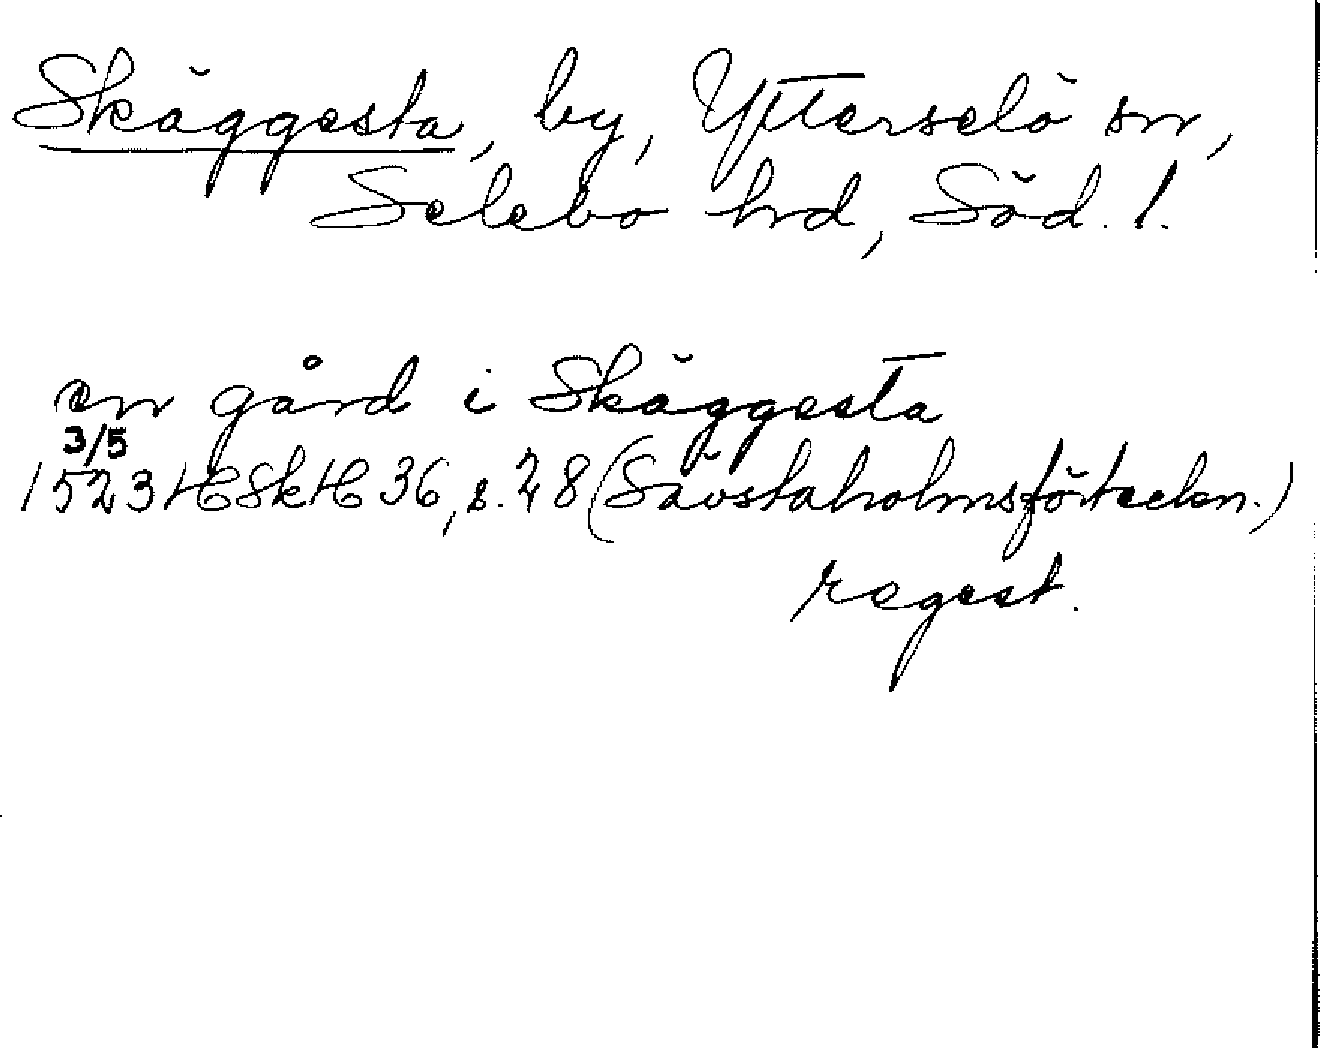 Skäggesta, by, Ytterselö sn,
Selebo hrd, Söd. l.
en gård i Skäggesta
3/5
1523 HSkH 36, s. 28 (Sävstaholmsförteckn.)
regest.